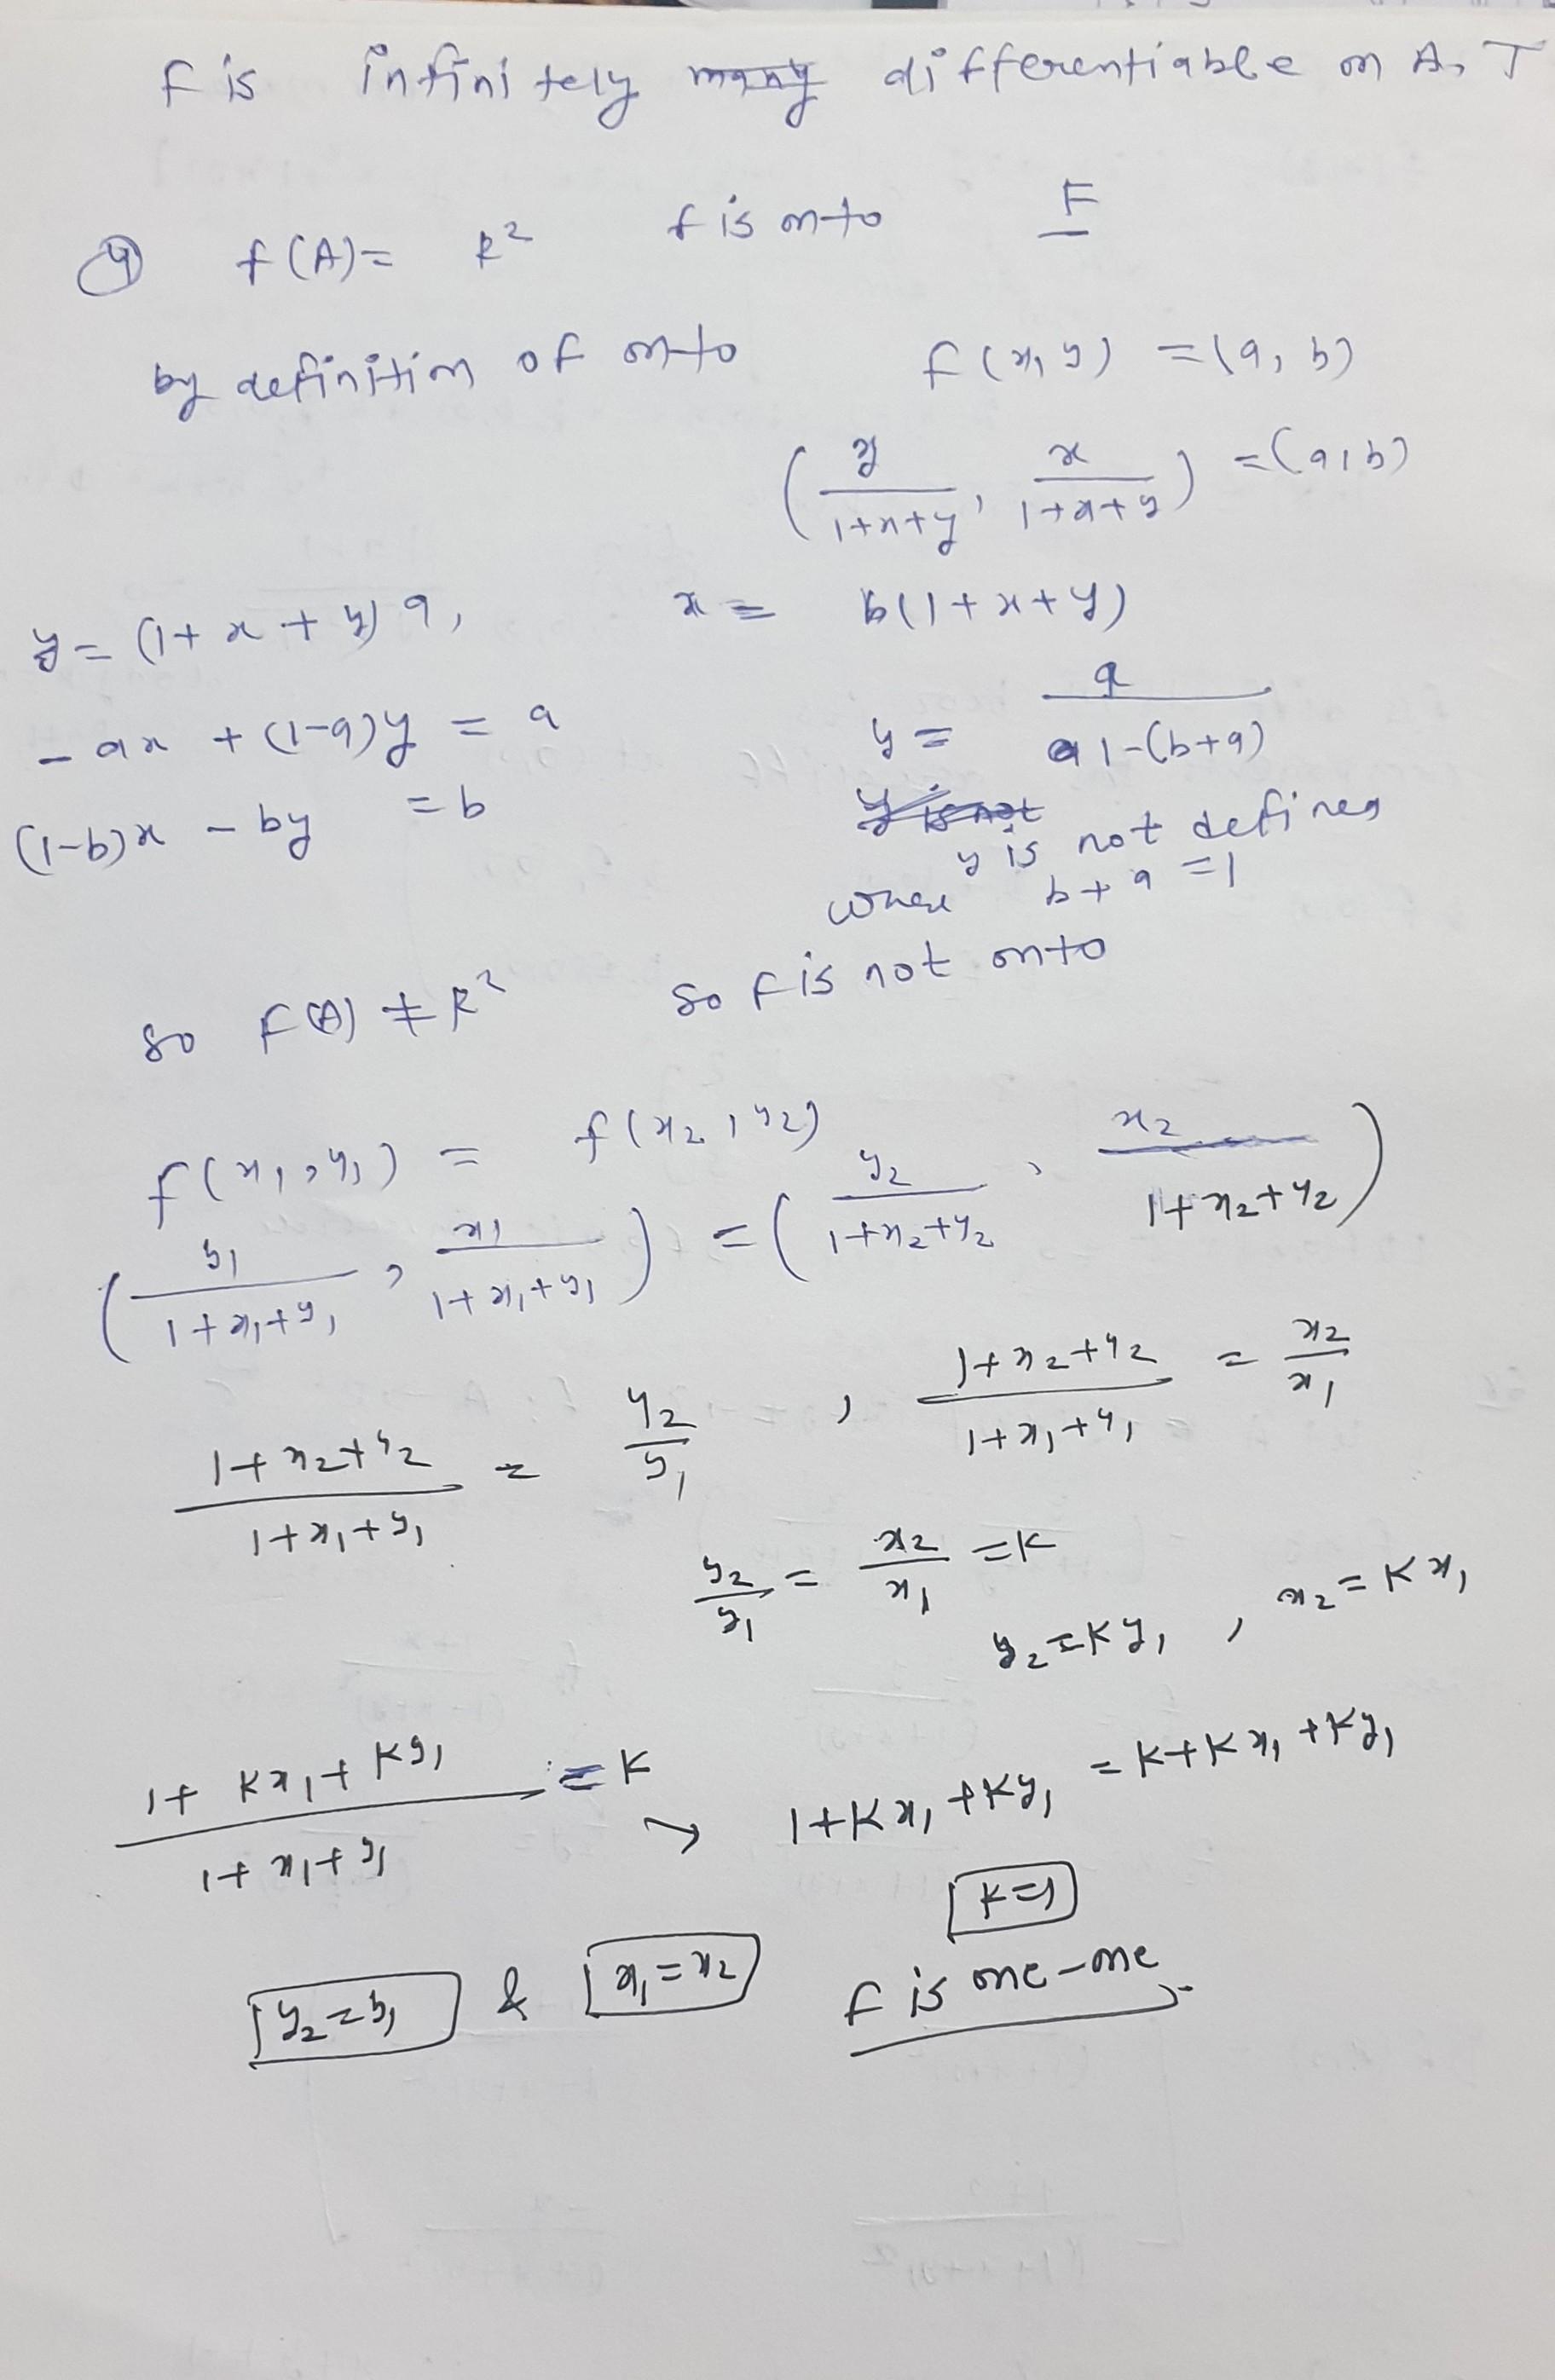 f is infinitely many differentiable on A, T
④ f(A) = R² f is onto F
by definition of onto f(x, y) = (a, b)
(y/(1+x+y), x/(1+x+y)) = (a, b)
y = (1+x+y) a, x = b(1+x+y)
-ax + (1-a)y = a y = a/(1-(b+a))
(1-b)x - by = b y is not
y is not defined
where b+a = 1
so f(A) ≠ R² so f is not onto
f(x₁, y₁) = f(x₂, y₂)
(y₁/(1+x₁+y₁), x₁/(1+x₁+y₁)) = (y₂/(1+x₂+y₂), x₂/(1+x₂+y₂))
(1+x₂+y₂)/(1+x₁+y₁) = y₂/y₁, (1+x₂+y₂)/(1+x₁+y₁) = x₂/x₁
y₂/y₁ = x₂/x₁ = K
y₂ = Ky₁, x₂ = Kx₁
(1+Kx₁+Ky₁)/(1+x₁+y₁) = K → 1+Kx₁+Ky₁ = K+Kx₁+Ky₁
K=1
y₂ = y₁ & x₁ = x₂ f is one-one